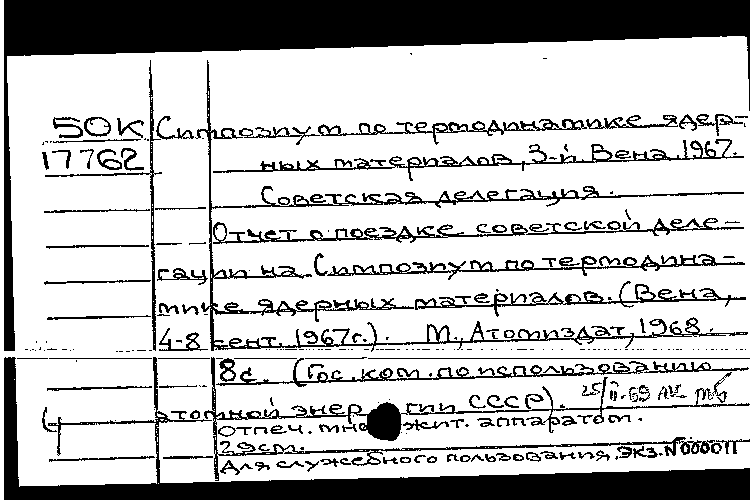 50К Симпозиум по термодинамике ядер-
17762 ных материалов, 3-й. Вена. 1967.
Советская делегация.
Отчет о поездке советской деле-
гации на Симпозиум по термодина-
мике ядерных материалов. (Вена,
4-8 сент. 1967г.). М., Атомиздат, 1968.
8с. (Гос. ком. по использованию
атомной энергии СССР). 25/II-69
Отпеч. множит. аппаратом.
29см.
Для служебного пользования, Экз. N 000011